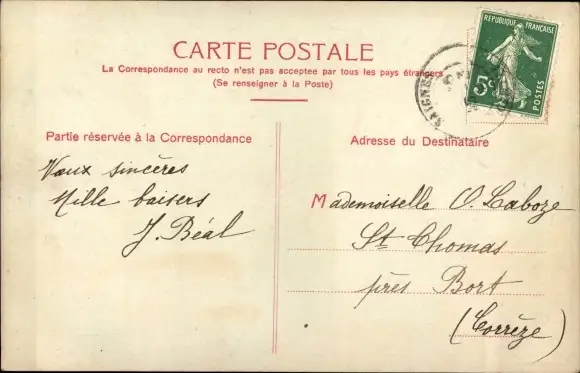 CARTE POSTALE
La Correspondance au recto n'est pas acceptee par tous les pays étrangers
(Se renseigner à la Poste)
REPUBLIQUE FRANÇAISE
5c
POSTES
Partie réservée à la Correspondance
Vœux sincères
Mille baisers
J. Béal
Adresse du Destinataire
Mademoiselle O. Laboze
St Thomas
près Bort
(Corrèze)